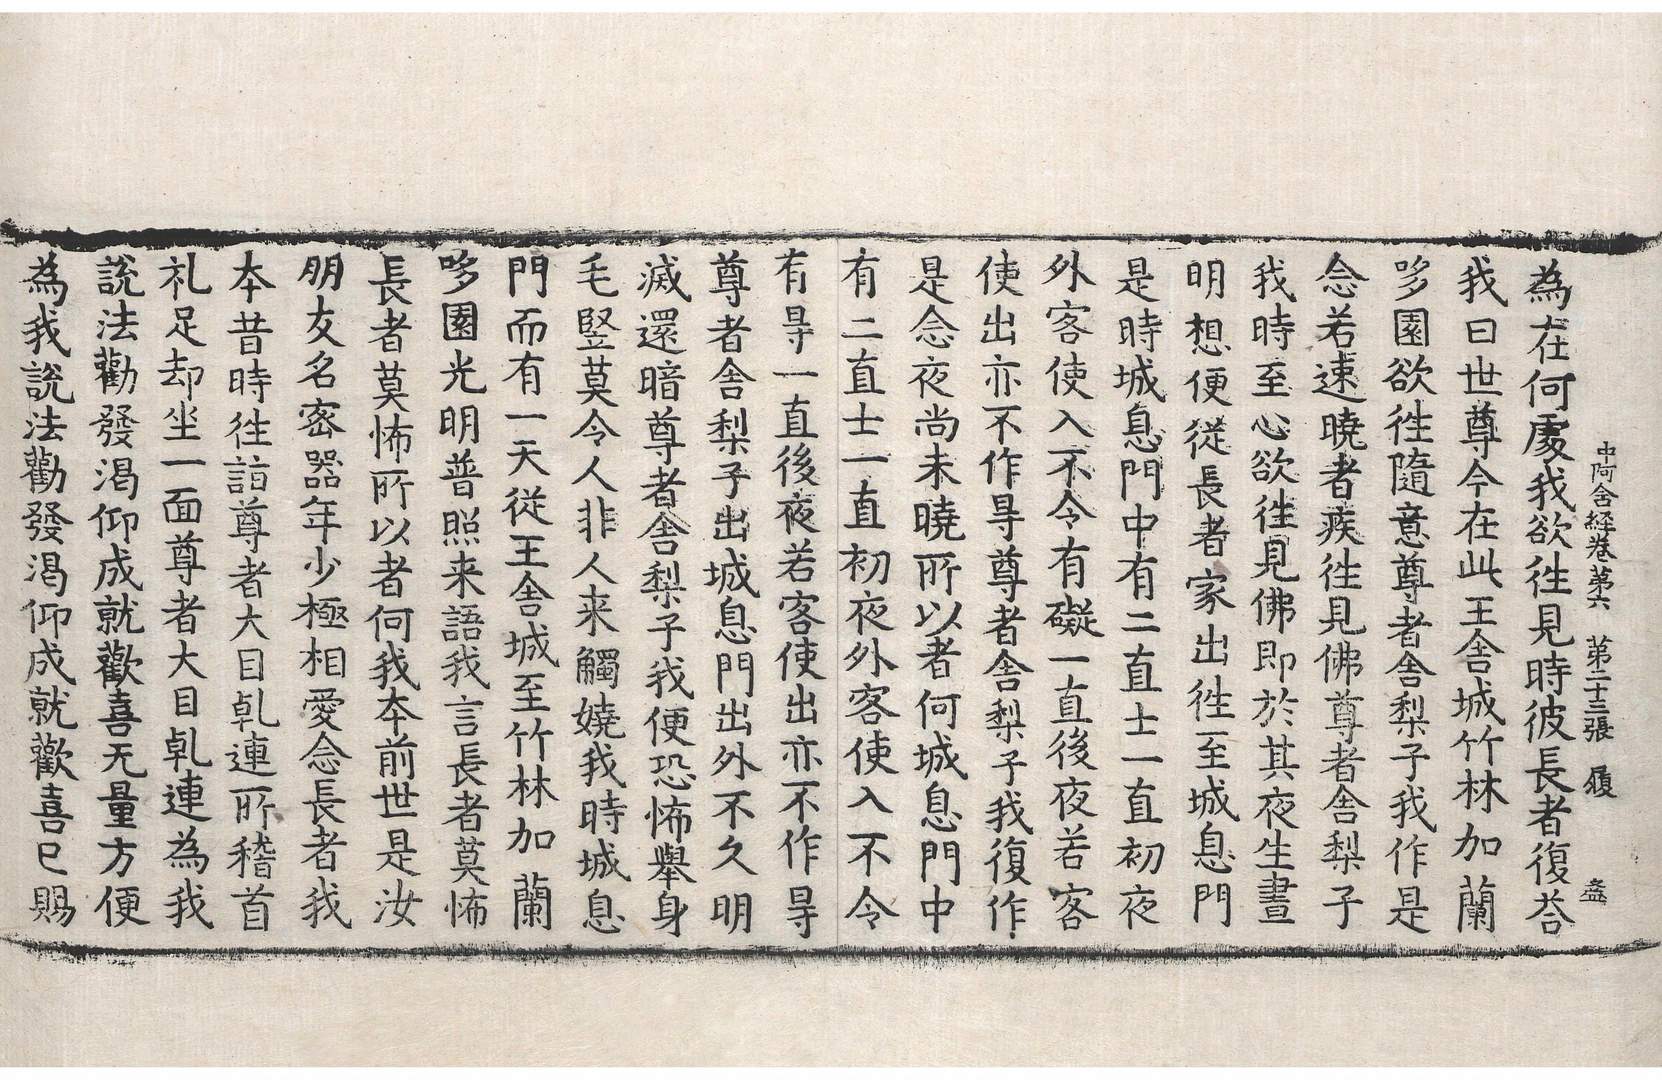 中阿含経卷第六　第二十三張　履　盎
為在何處我欲徃見時彼長者復荅
我曰世尊今在此王舎城竹林加蘭
哆園欲徃隨意尊者舎梨子我作是
念若速曉者疾徃見佛尊者舎梨子
我時至心欲徃見佛即於其夜生晝
明想便從長者家出徃至城息門
是時城息門中有二直士一直初夜
外客使入不令有礙一直後夜若客
使出亦不作㝵尊者舎梨子我復作
是念夜尚未曉所以者何城息門中
有二直士一直初夜外客使入不令
有㝵一直後夜若客使出亦不作㝵
尊者舎梨子出城息門出外不久明
滅還暗尊者舎梨子我便恐怖舉身
毛竪莫令人非人来觸嬈我時城息
門而有一天從王舎城至竹林加蘭
哆園光明普照来語我言長者莫怖
長者莫怖所以者何我本前世是汝
朋友名密器年少極相愛念長者我
本昔時徃詣尊者大目乹連所稽首
礼足却坐一面尊者大目乹連為我
說法勸發渴仰成就歡喜无量方便
為我說法勸發渴仰成就歡喜已賜